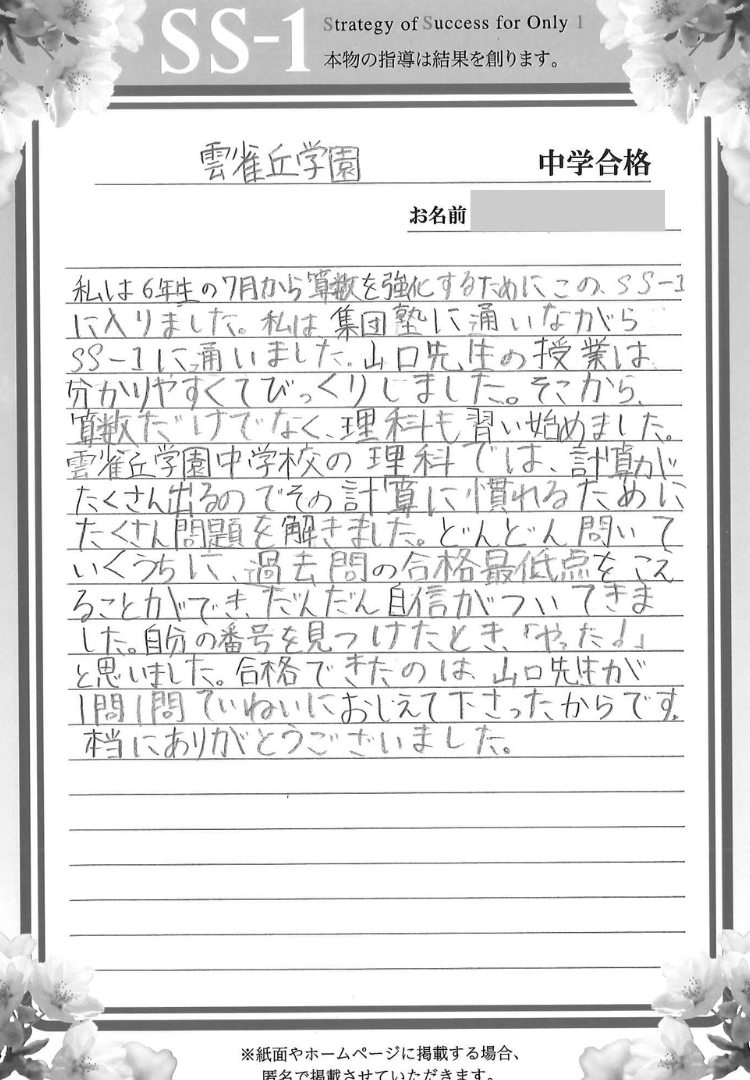 SS-1 Strategy of Success for Only 1
本物の指導は結果を創ります。
雲雀丘学園 中学合格
お名前
私は6年生の7月から算数を強化するためにこのSS-1
に入りました。私は集団塾に通いながら
SS-1に通いました。山口先生の授業は
分かりやすくてびっくりしました。そこから、
算数だけでなく、理科も習い始めました。
雲雀丘学園中学校の理科では、計算が
たくさん出るのでその計算に慣れるために
たくさん問題を解きました。どんどん問いて
いくうちに、過去問の合格最低点をこえ
ることができ、だんだん自信がついてきま
した。自分の番号を見つけたとき、「やった!」
と思いました。合格できたのは、山口先生が
1問1問ていねいにおしえて下さったからです。
本当にありがとうございました。
※紙面やホームページに掲載する場合、
匿名で掲載させていただきます。